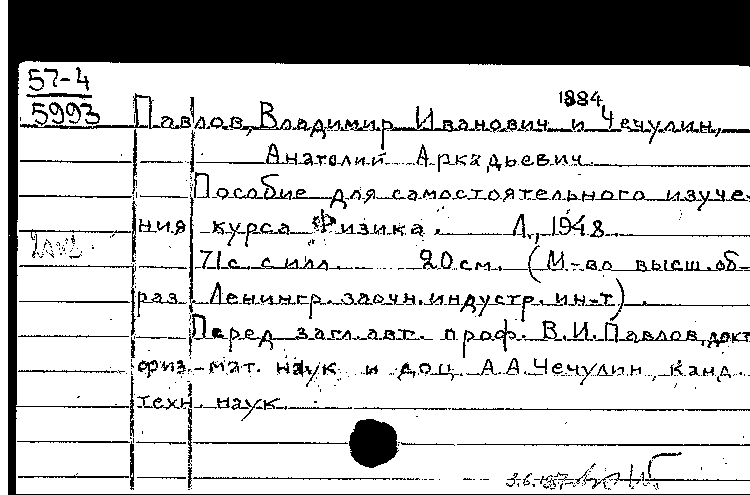 57-4
5993
1884
Павлов, Владимир Иванович и Чечулин,
Анатолий Аркадьевич.
Пособие для самостоятельного изуче-
ния курса Физика. Л., 1948.
71 с. с илл. 20 см. (М-во высш. об-
раз. Ленингр. заочн. индустр. ин-т).
Перед загл. авт. проф. В. И. Павлов, докт.
физ.-мат. наук и доц. А. А. Чечулин, канд.
техн. наук.
3.6.